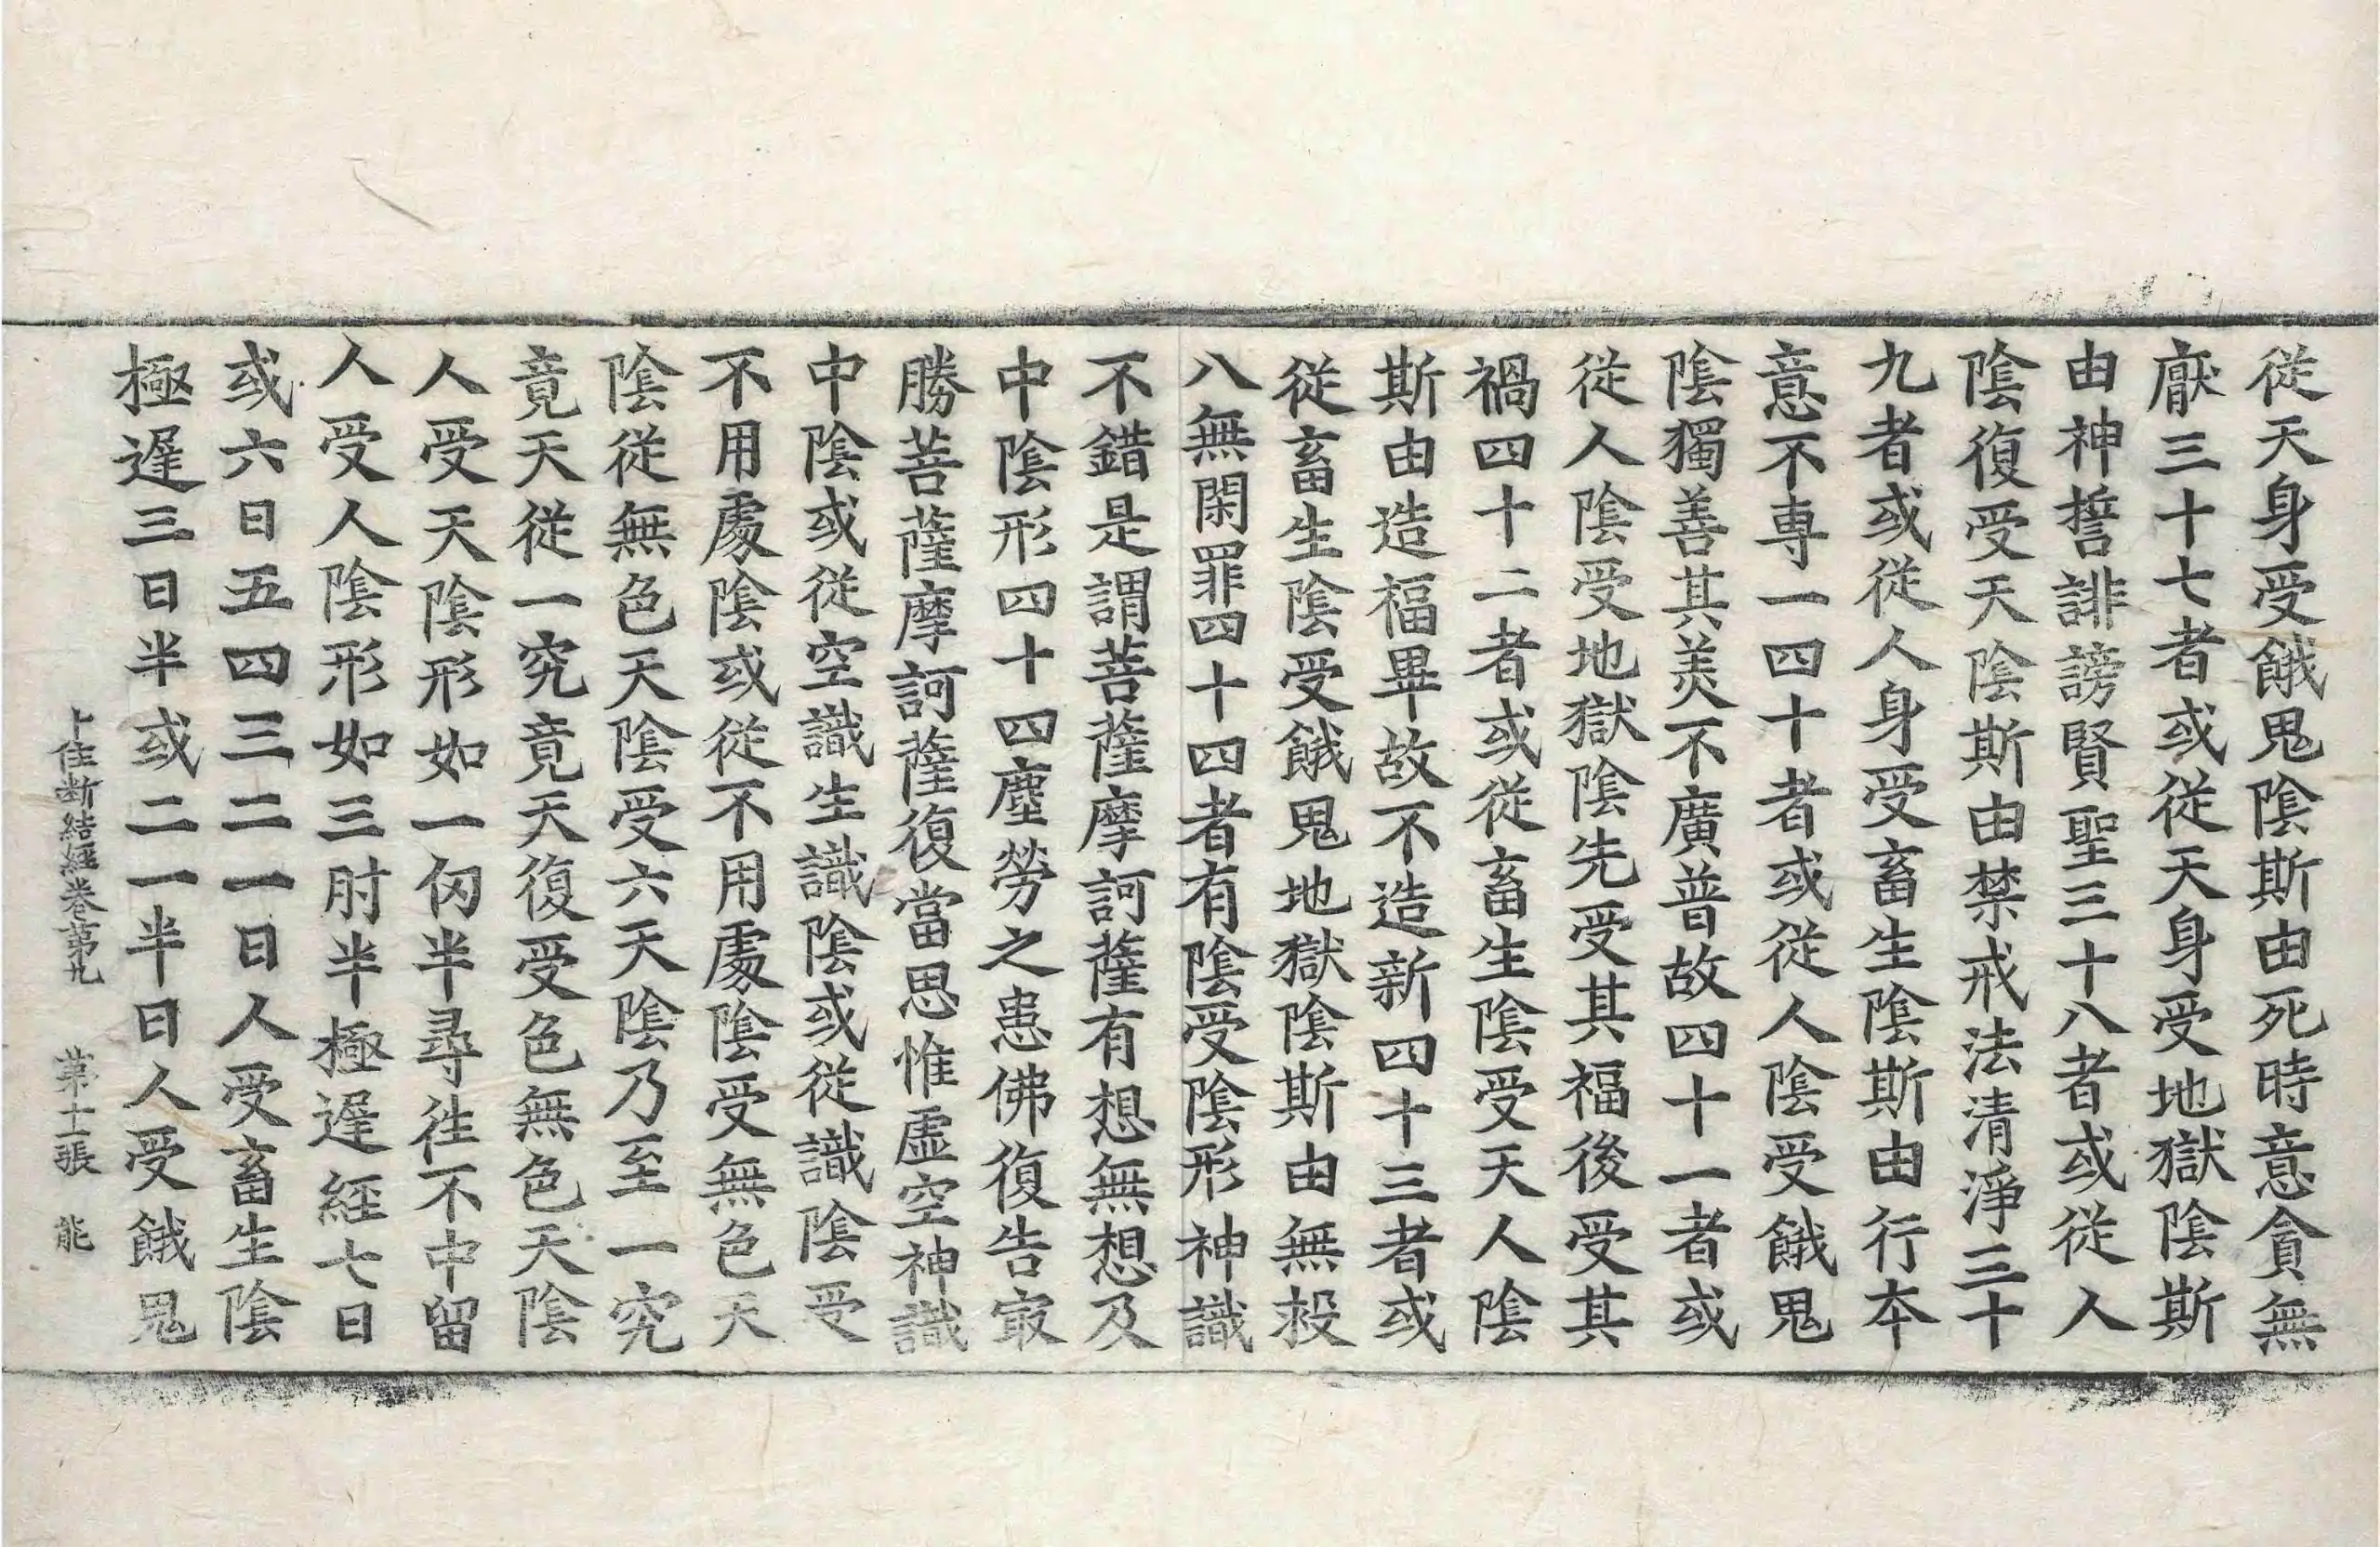 從天身受餓鬼陰斯由死時意貪無
厭三十七者或從天身受地獄陰斯
由神誓誹謗賢聖三十八者或從人
陰復受天陰斯由禁戒法清淨三十
九者或從人身受畜生陰斯由行本
意不專一四十者或從人陰受餓鬼
陰獨善其美不廣普故四十一者或
從人陰受地獄陰先受其福後受其
禍四十二者或從畜生陰受天人陰
斯由造福畢故不造新四十三者或
從畜生陰受餓鬼地獄陰斯由無救
八無閑罪四十四者有陰受陰形神識
不錯是謂菩薩摩訶薩有想無想及
中陰形四十四塵勞之患佛復告㝡
勝菩薩摩訶薩復當思惟虛空神識
中陰或從空識生識陰或從識陰受
不用處陰或從不用處陰受無色天
陰從無色天陰受六天陰乃至一究
竟天從一究竟天復受色無色天陰
人受天陰形如一仞半尋往不中留
人受人陰形如三肘半極遲經七日
或六日五四三二一日人受畜生陰
極遲三日半或二一半日人受餓鬼
十住斷結經卷第九 第十一張 能